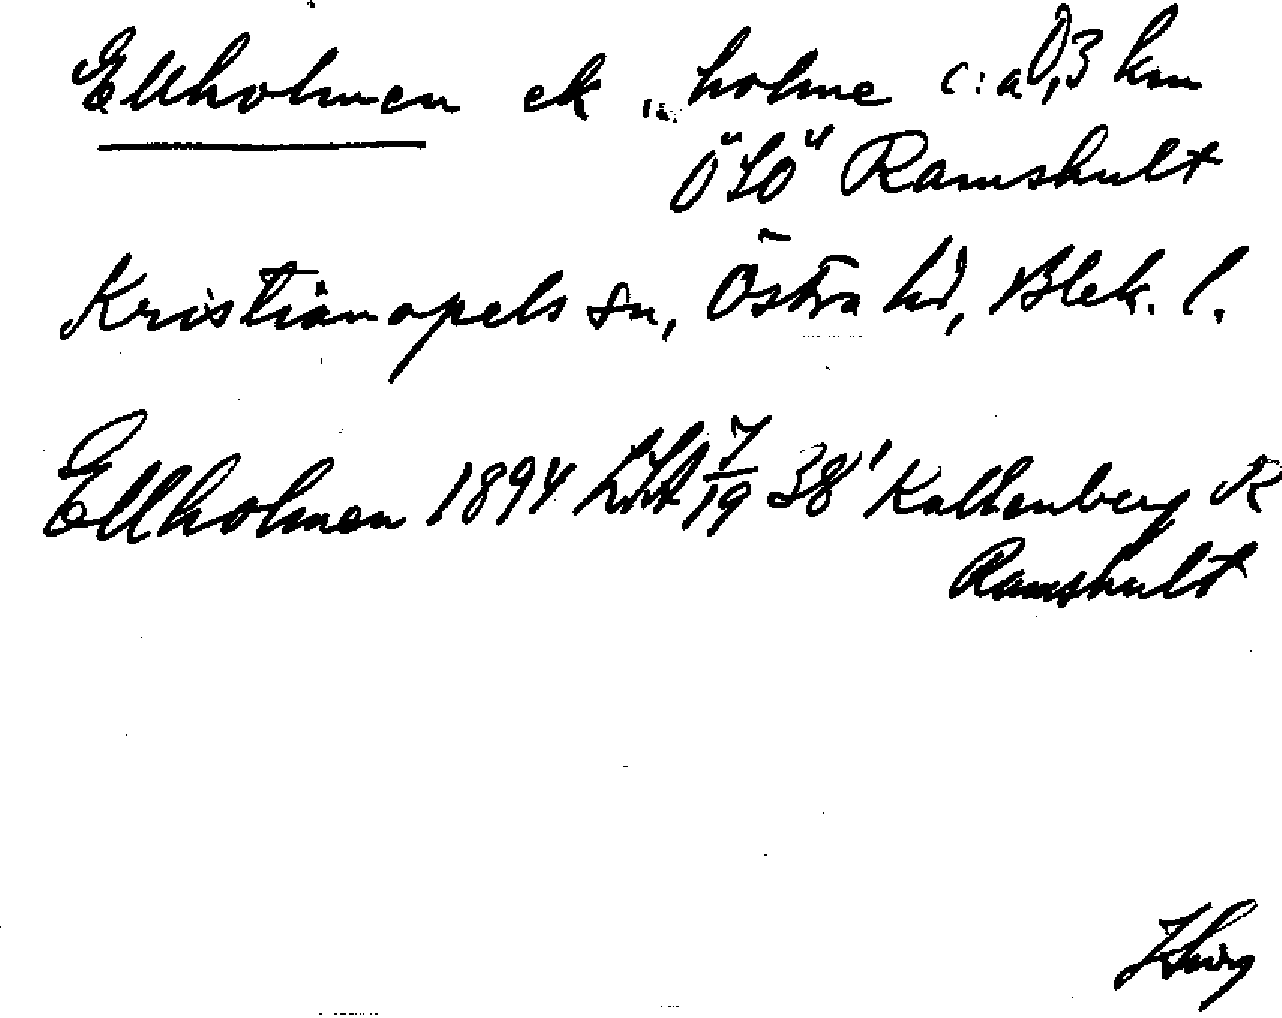 Ellholmen ek holme c:a 0,3 km
ÖSÖ Ramshult
Kristianopels sn, Östra hd, Blek. l.
Ellholmen 1894 LSA 7/19 38' Kallenberg R
Ramshult